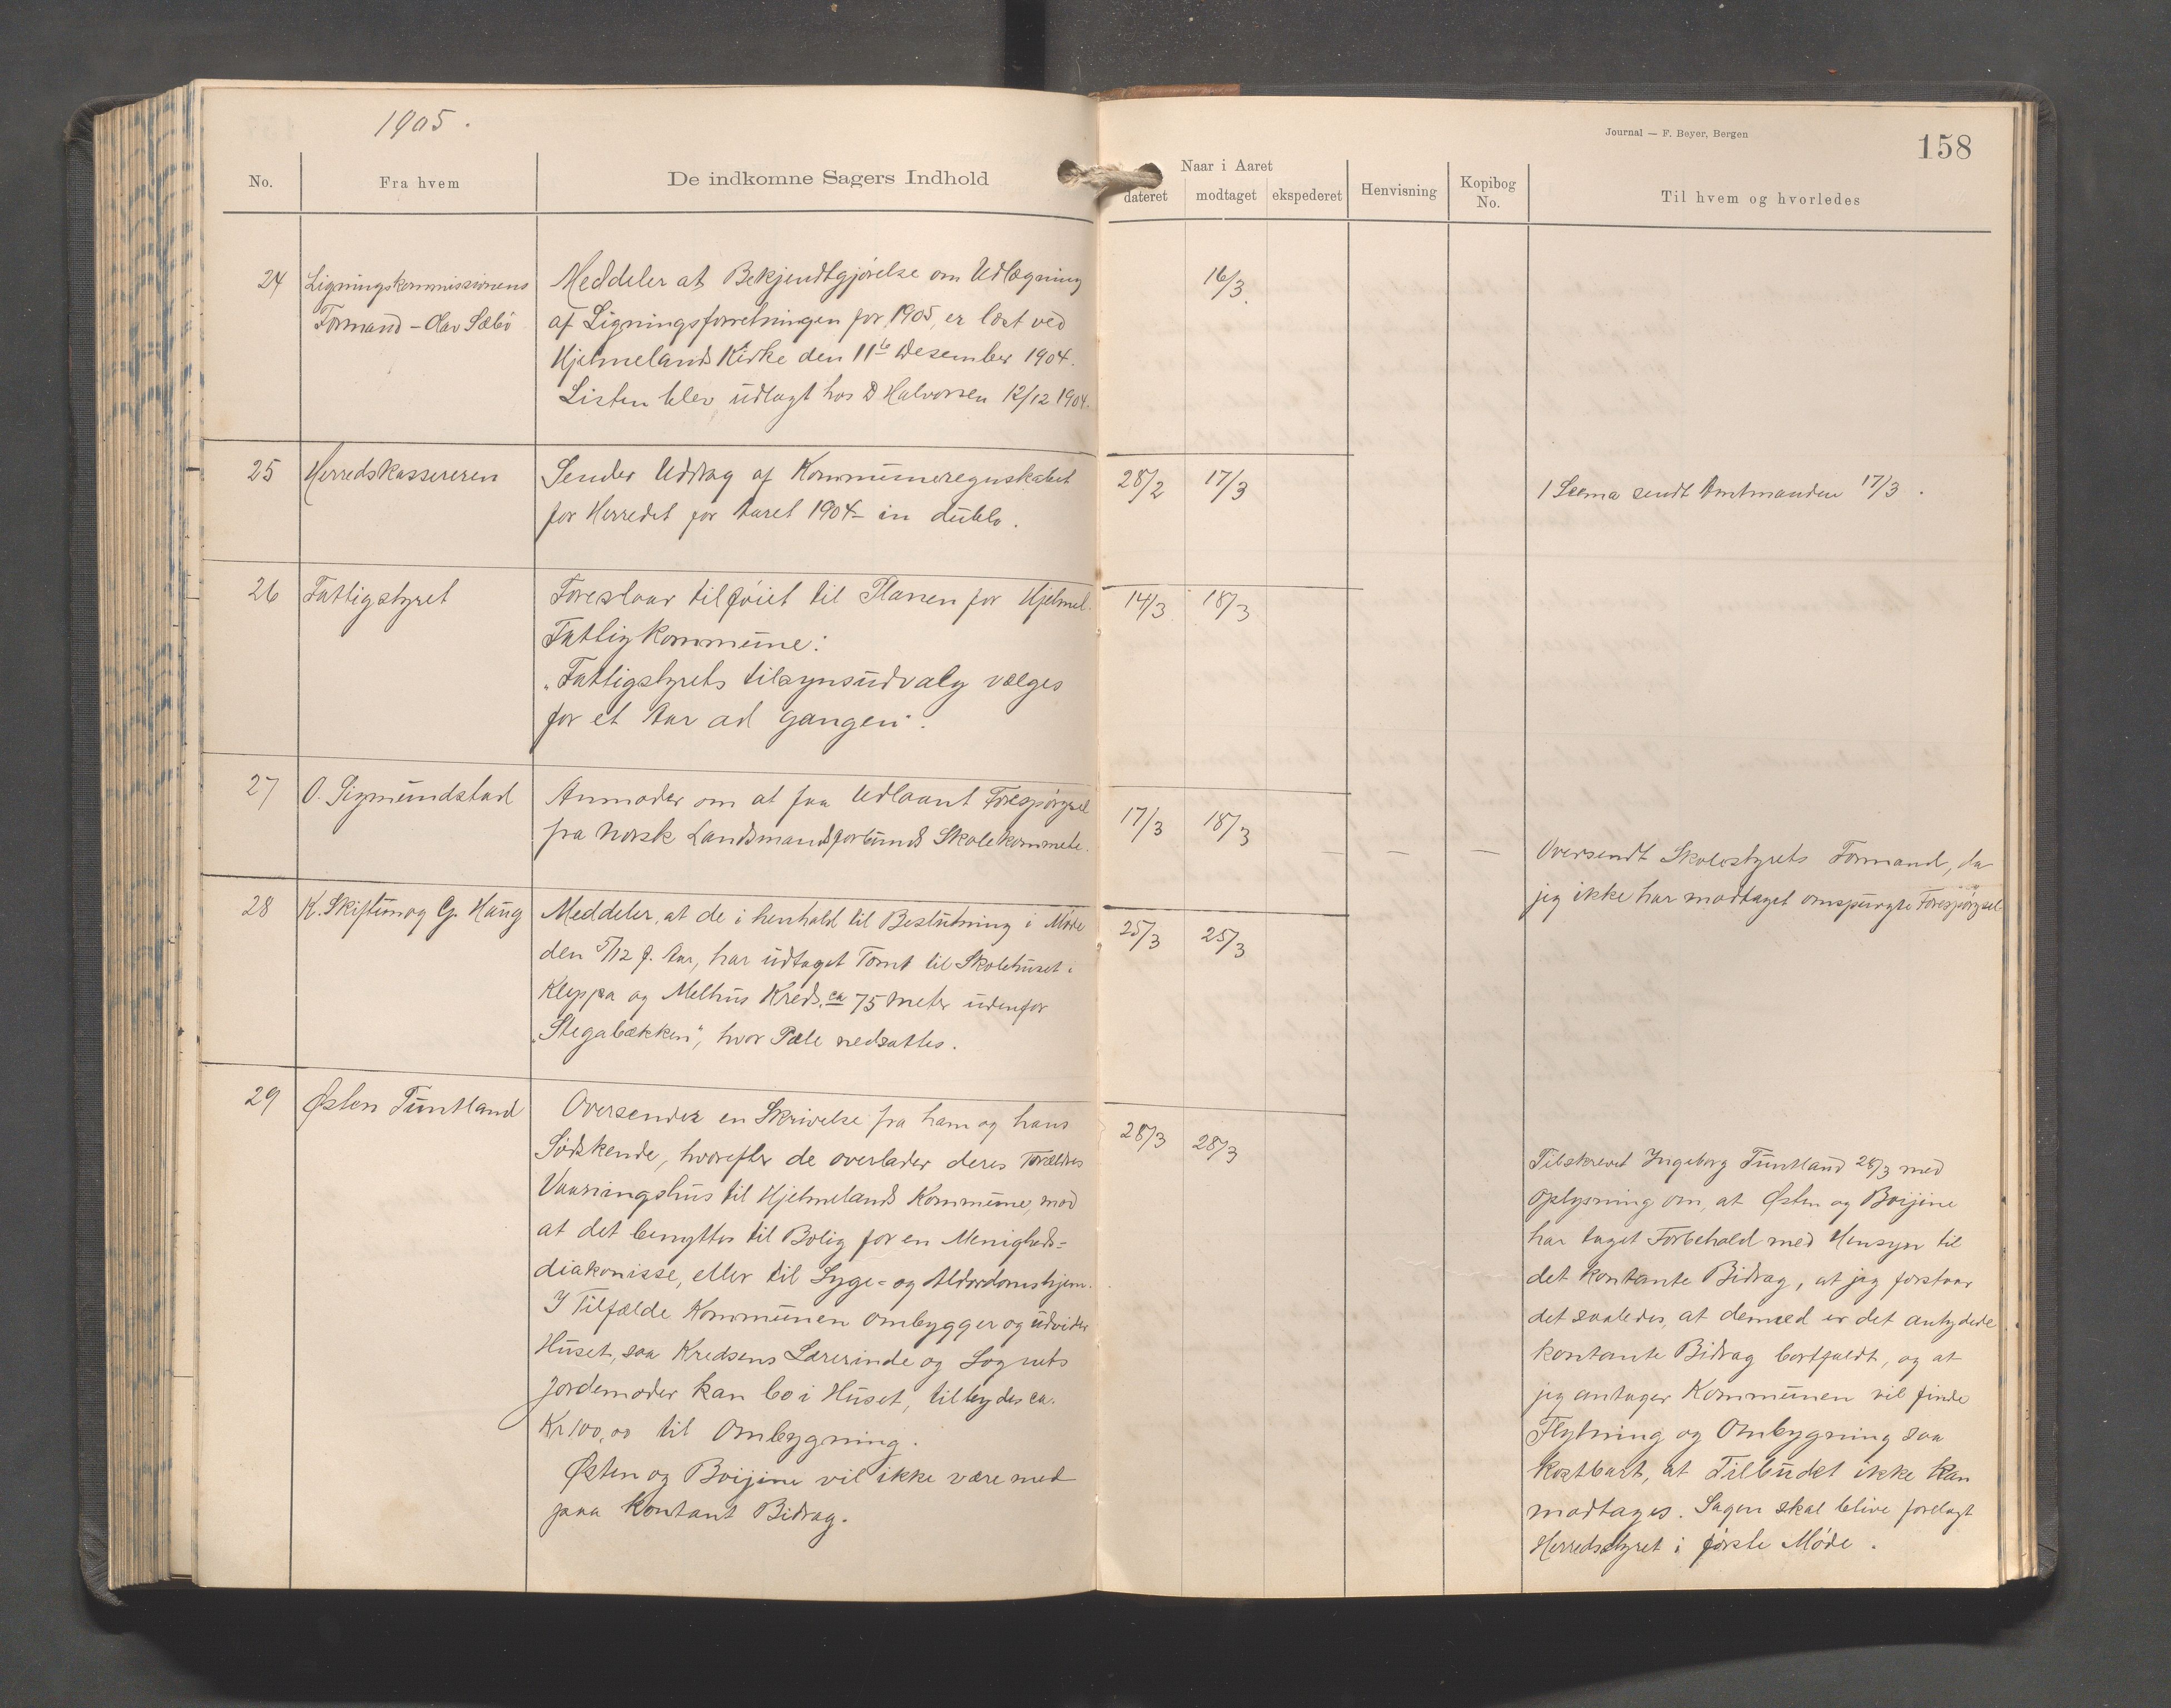 1905.
Journal — F. Beyer, Bergen
158
No.
Fra hvem
De indkomne Sagers Indhold
Naar i Aaret
dateret
modtaget
ekspederet
Henvisning
Kopibog
No.
Til hvem og hvorledes
24
Ligningskommissionens
Formand - Olav Sæbö
Meddeler at Bekjendtgjörelse om Udlægning
af Ligningsforretningen for 1905, er læst ved
Hjelmelands Kirke den 11te Desember 1904.
Listen blev udlagt hos D Halvorsen 12/12 1904.
16/3.
25
Herredskassereren
Sender Uddrag af Kommuneregnskabet
for Herredet for Aaret 1904 - in dublo.
28/2
17/3
1 Scema sendt Amtmanden 17/3.
26
Fattigstyret
Foreslaar tilföiet til Planen for Hjelmel.
Fattigkommune:
"Fattigstyrets tilsynsudvalg vælges
for et Aar ad gangen".
14/3
18/3
27
O. Sigmundstad
Anmoder om at faa Udlaant Forespörgsel
fra Norsk Landsmandsforbunds Skolekommete.
17/3
18/3
— — —
Oversendt Skolestyrets Formand, da
jeg ikke har modtaget omspurgte Forespörgsel
28
K. Skiftun og G. Haug
Meddeler, at de i henhold til Beslutning i Möde
den 5/12 f. Aar, har udtaget Tomt til Skolehuset i
Kleppa og Melhus Kreds. ca 75 Meter udenfor
"Stegabækken", hvor Pæle nedsattes.
25/3
25/3
29
Østen Tuntland
Oversender en Skrivelse fra ham og hans
Södskende, hvorefter de overlader deres Forældres
Vaaningshus til Hjelmelands Kommune, mod
at det benyttes til Bolig for en Menigheds=
diakonisse, eller til Syge= og Alderdomshjem.
I Tilfælde Kommunen ombygger og udvider
Huset, saa Kredsens Lærerinde og Sognets
Jordemoder kan bo i Huset, tilbydes ca.
Kr 100,00 til Ombygning.
Østen og Boijine vil ikke være med
paa Kontant Bidrag.
28/3
28/3
Tilskrevet Ingeborg Tuntland 28/3 med
Oplysning om, at Østen og Boijine
har taget Forbehold med Hensyn til
det kontante Bidrag, at jeg forstaar
det saaledes, at dermed er det antydede
kontante Bidrag bortfaldt, og at
jeg antager Kommunen vil finde
Flytning og Ombygning saa
kostbart, at Tilbudet ikke kan
modtages. Sagen skal blive forelagt
Herredsstyret i förste Möde.